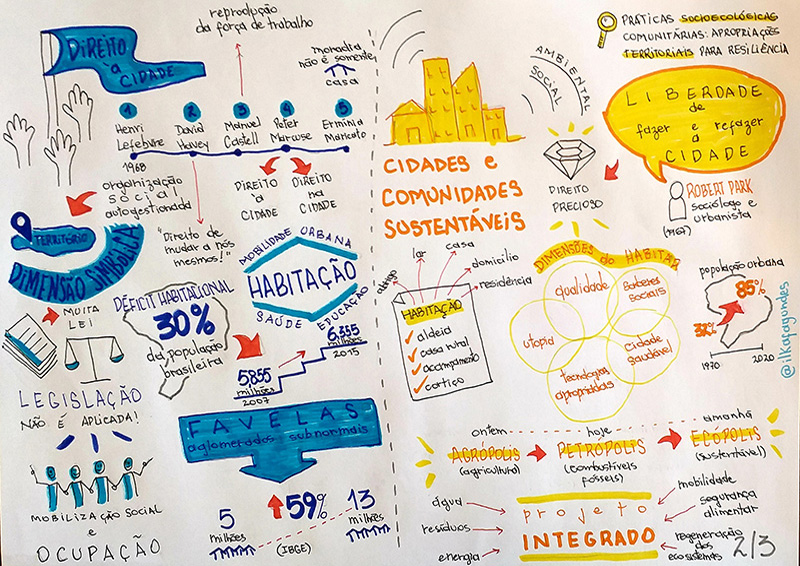 DIREITO
à
CIDADE
reprodução
da força de trabalho
moradia
não é somente
casa
1
2
3
4
5
Henri
Lefebvre
David
Havey
Manuel
Castell
Peter
Marcuse
Ermínia
Maricato
1968
organização
social
autogestionada
"Direito de
mudar a nós
mesmos!"
DIREITO
à
CIDADE
DIREITO
na
CIDADE
TERRITÓRIO
DIMENSÃO SIMBÓLICA
MUITA
LEI
LEGISLAÇÃO
NÃO É APLICADA!
MOBILIZAÇÃO SOCIAL
e
OCUPAÇÃO
DÉFICIT HABITACIONAL
30%
da população
brasileira
MOBILIDADE URBANA
HABITAÇÃO
SAÚDE
EDUCAÇÃO
5,855
milhões
2007
6.355
milhões
2015
FAVELAS
aglomerados subnormais
59%
5
milhões
(IBGE)
13
milhões
PRÁTICAS SOCIOECOLÓGICAS
COMUNITÁRIAS: APROPRIAÇÕES
TERRITORIAIS PARA RESILIÊNCIA
AMBIENTAL
SOCIAL
DIREITO
PRECIOSO
LIBERDADE
de
fazer e refazer
a
CIDADE
ROBERT PARK
sociólogo e
urbanista
(1967)
CIDADES e
COMUNIDADES
SUSTENTÁVEIS
abrigo
lar
casa
domicílio
residência
HABITAÇÃO
aldeia
casa rural
acampamento
cortiço
DIMENSÕES do HABITAR
qualidade
Saberes
Sociais
utopia
Cidade
Saudável
tecnologias
apropriadas
população urbana
32%
85%
1970
2020
@ilkafagundes
ontem
hoje
amanhã
AGRÓPOLIS
(agricultural)
PETRÓPOLIS
(combustíveis
fósseis)
ECÓPOLIS
(sustentável)
água
resíduos
energia
projeto
INTEGRADO
mobilidade
segurança
alimentar
regeneração
dos
ecossistemas
2/3